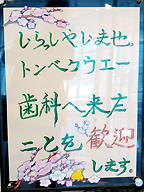 いらっしゃいませ。
トンベクウエー
歯科へ来店
ことを歓迎
します。